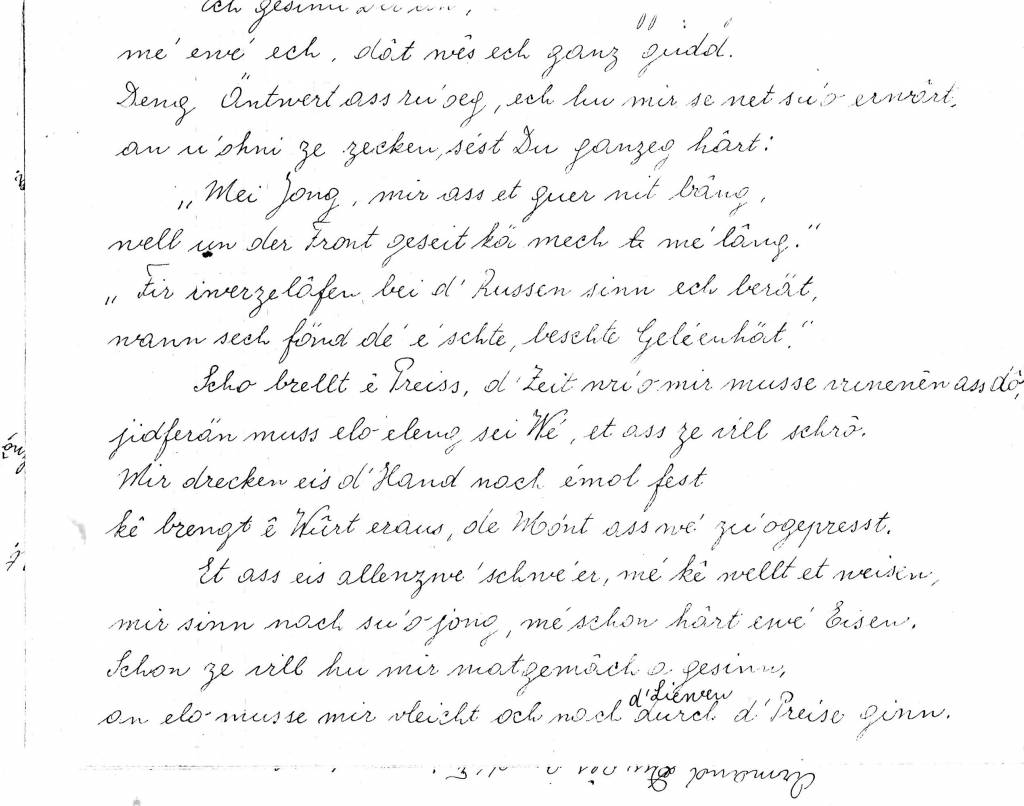 Ech gesinn
mé ewé ech, dôt wês ech ganz gudd.
Deng Äntwert ass rú'oeg, ech hu mir se net sú'o erwârt,
an ú'ohni ze zecken, sést Du ganzeg hârt:
„Mei Jong, mir ass et guer nit bâng,
well un der Front geseit kä mech te mé lâng."
„Fir iwerzelâfen bei d' Russen sinn ech berät,
wann sech fönd dé é'schte, beschte Geléenhät."
Scho brellt ê Preiss, d' Zeit wú'o mir musse vunenên ass dô,
jidferän muss elo eleng sei Wé, et ass ze vill schrô.
Mir drecken eis d' Hand noch émol fest
kê brengt ê Wûrt eraus, de Mónt ass wé zú'ogepresst.
Et ass eis allenzwé schwé'er, mé kê wellt et weisen,
mir sinn noch sú'o jong, mé schon hârt ewé Eisen.
Schon ze vill hu mir matgemâch a gesinn,
an elo musse mir vleicht och noch d'Liewen durch d' Preise ginn.
Armand